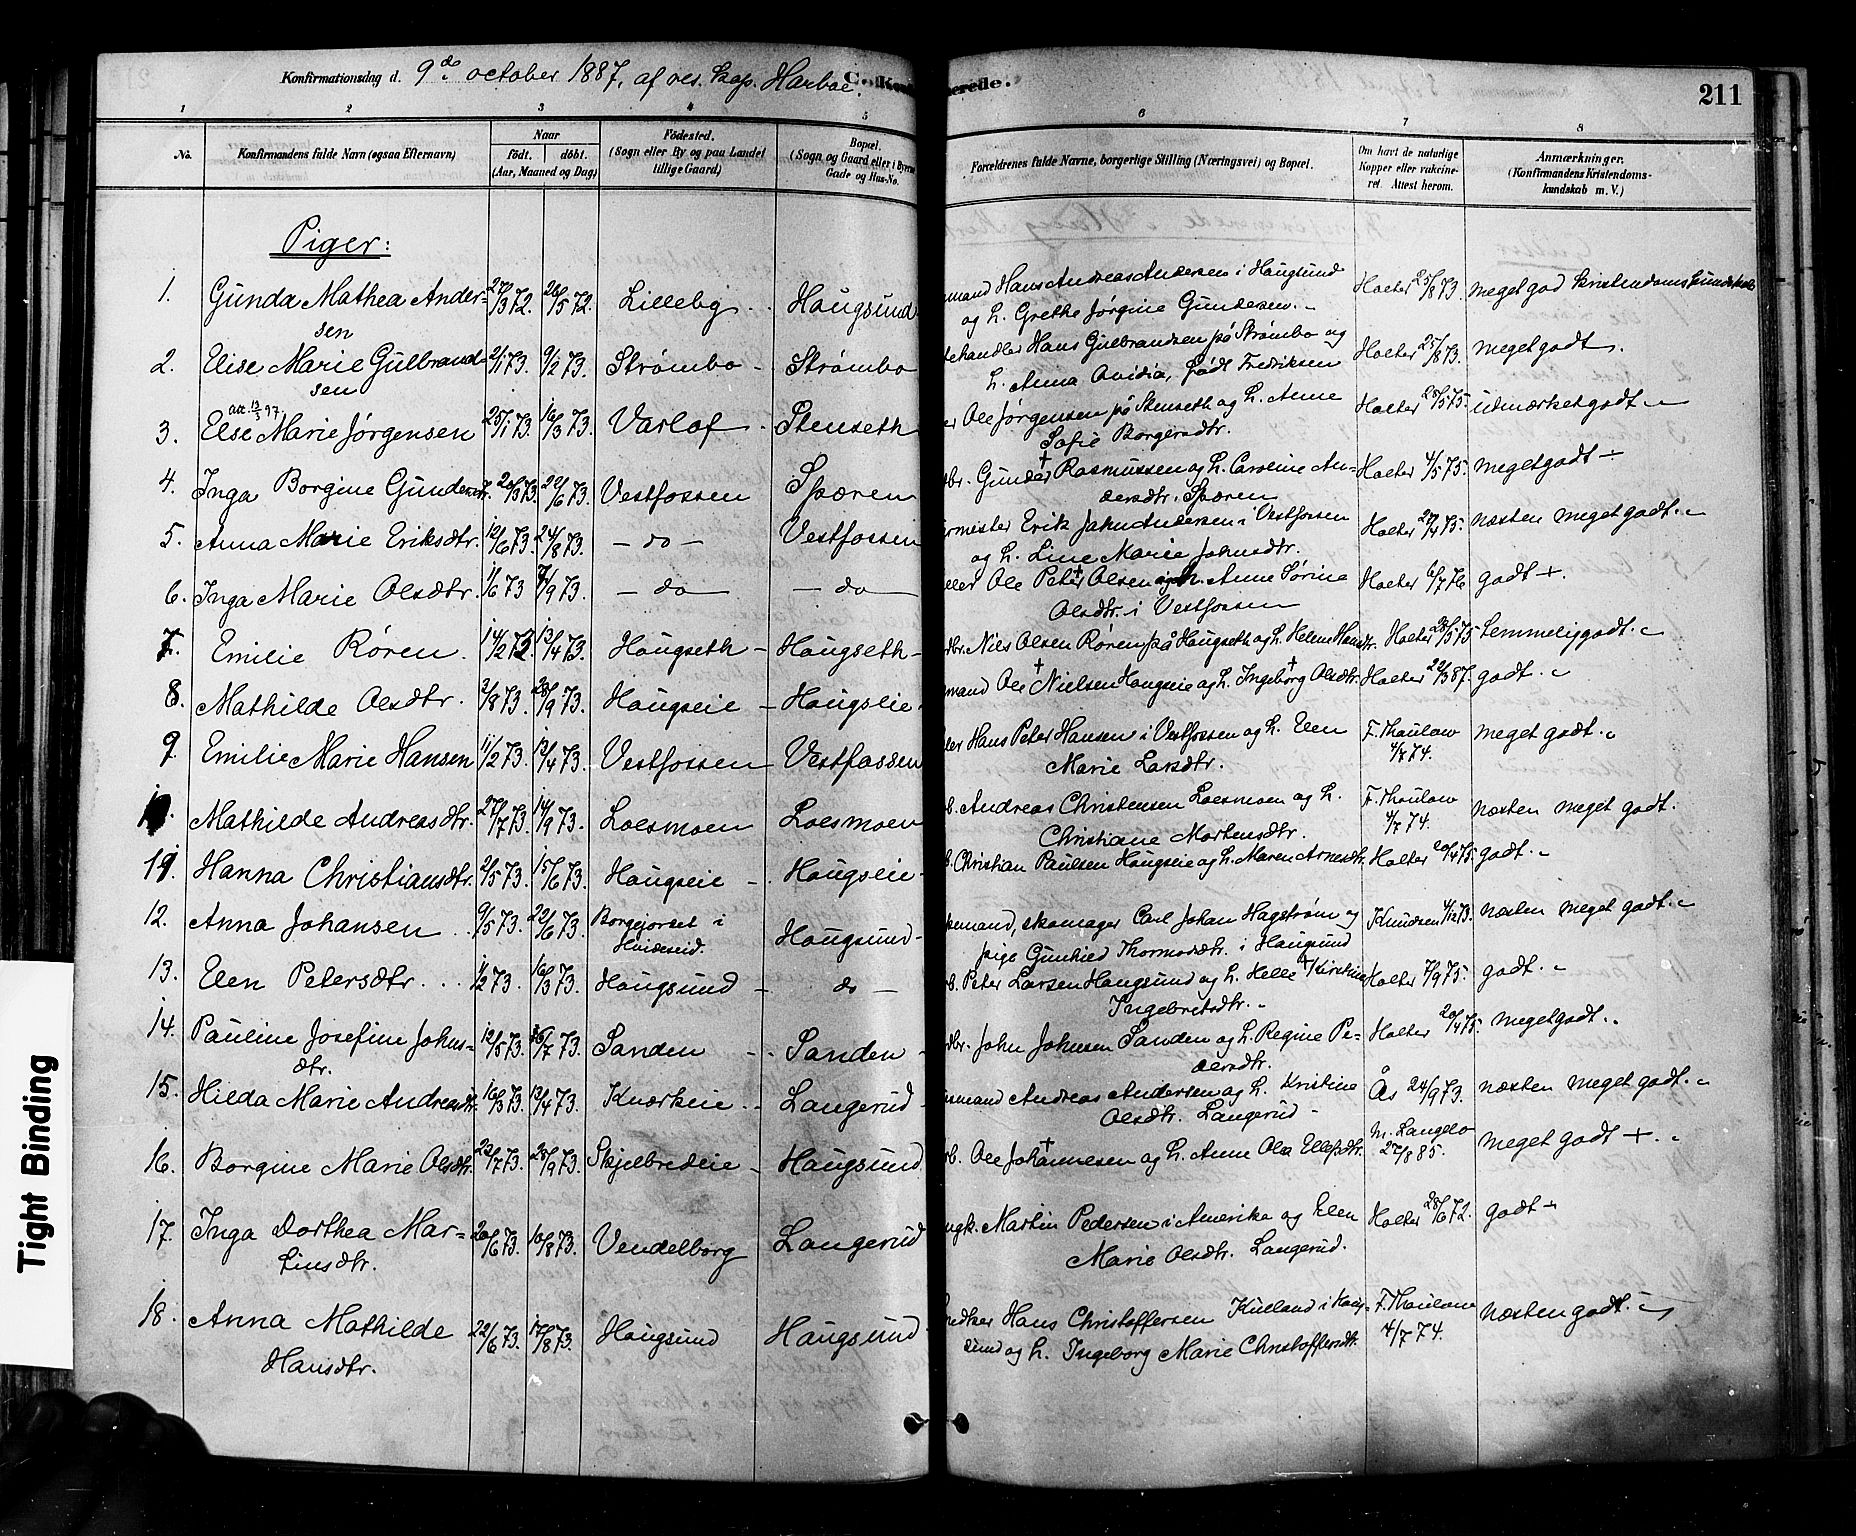 Konfirmationsdag d. 9de october 1887, af res. kap. Harboe.
211
1 2 3 4 5 6 7 8
No.
Konfirmandens fulde Navn (ogsaa Efternavn)
Naar
født. døbt.
(Aar, Maaned og Dag)
Fødested.
(Sogn eller By og paa Landet
tillige Gaard)
Bopæl.
(Sogn og Gaard eller i Byerne
Gade og Hus-No.
Forældrenes fulde Navne, borgerlige Stilling (Næringsvei) og Bopæl.
Om havt de naturlige
Kopper eller vakcine-
ret. Attest herom.
Anmærkninger.
(Konfirmandens Kristendoms-
kundskab m. V.)
Piger:
1. Gunda Mathea Ander- 27/3 72. 26/5 72. Lilleby Haugsund mand Hans Andreas Andersen i Haugsund Holter 25/8 73. meget god kristendomskundskab
sen og h. Grethe Jørgine Gundersen.
2. Elise Marie Gulbrand- 2/1 73. 9/2 73. Strømbo Strømbo handler Hans Gulbrandsen på Strømbo og Holter 25/8 73. meget godt.
sen h. Anna Ovidia, født Fredriksen
att. 13/3 97.
3. Else Marie Jørgensen 25/1 73. 16/3 73. Varlof Stenseth Ole Jørgensen på Stenseth og h. Anne Holter 20/5 75. udmærket godt
Sofie Borgersdtr.
4. Inga Borgine Gundersdtr. 20/3 73. 22/6 73. Vestfossen Spæren br. Gunder + Rasmussen og h. Caroline An- Holter 4/5 75. meget godt +
dersdtr. Spæren
5. Anna Marie Eriksdtr. 12/6 73. 24/8 73. - do - Vestfossen mester Erik Jahn Andersen i Vestfossen Holter 27/4 75. næsten meget godt.
og h. Line Marie Johnsdtr.
6. Inga Marie Olsdtr. 1/6 73 7/9 73. - do - - do Ole Peter + Olsen og h. Anne Sørine Holter 6/7 76. godt +.
Olsdtr. i Vestfossen
7. Emilie Røren. 14/2 72. 13/4 73. Haugseth Haugseth br. Niels Olsen Røren på Haugseth og h. Helene Hansdtr. Holter 28/5 75 temmelig godt.
8. Mathilde Olsdtr. 3/8 73. 28/9 73. Haugseie Haugseie mand Ole + Nielsen Haugseie og h. Ingeborg + Olsdtr. Holter 22/3 87. godt.
9. Emilie Marie Hansen 11/2 73. 13/4 73. Vestfossen Vestfossen Hans Peter Hansen i Vestfossen og h. Elen F. Thaulow meget godt.
Marie Larsdtr. 4/7 74.
Mathilde Andreasdtr. 27/7 73. 14/9 73. Loesmoen Loesmoen Andreas Christensen Loesmoen og h. F. Thaulow næsten meget godt.
Christiane Mortensdtr. 4/7 74.
11. Hanna Christiansdtr. 2/5 73. 15/6 73. Haugseie Haugseie b. Christian Paulsen Haugseie og h. Maren Arnesdtr. Holter 20/4 75. godt.
12. Anna Johansen 9/5 73. 22/6 73. Borgejordet i Haugsund mand, skomager Carl Johan Hagstrøm og Knudsen 4/12 73. næsten meget godt.
Hvideseid. pige Gunhild Thormodsdtr. i Haugsund
13. Elen Petersdtr. 1/2 73. 16/3 73. Haugsund do b. Peter Larsen Haugsund og h. Helle + Kirstine Holter 7/9 75. godt.
Ingebretsdtr.
14. Pauline Josefine Johns- 12/5 73. 7 73. Sanden Sanden br. John Johnsen Sanden og h. Regine Pe- Holter 20/4 75. meget godt.
dtr. dersdtr.
15. Hilda Marie Andreasdtr. 16/3 73. 13/4 73. Knærkeie Langerud mand Andreas Andersen og h. Kristine Ås 24/9 73. næsten meget godt.
Olsdtr. Langerud
16. Borgine Marie Olsdtr. 22/7 73. 28/9 73. Skjelbredeie Haugsund b. Ole Johannesen + og h. Anne Olea Ellefsdtr. M. Langelo meget godt +.
27/8 85.
17. Inga Dorthea Mar- 20/6 73. 10/8 73. Vendelborg Langerud ungk. Martin Pedersen i Amerika og Elen Holter 28/6 72. godt +
tinsdtr. Marie Olsdtr. Langerud.
18. Anna Mathilde 22/6 73. 17/8 73. Haugsund Haugsund snedker Hans Christoffersen Kieland i Haug- F. Thaulow næsten godt.
Hansdtr. sund og h. Ingeborg Marie Christoffersdtr. 4/7 74.
Tight Binding